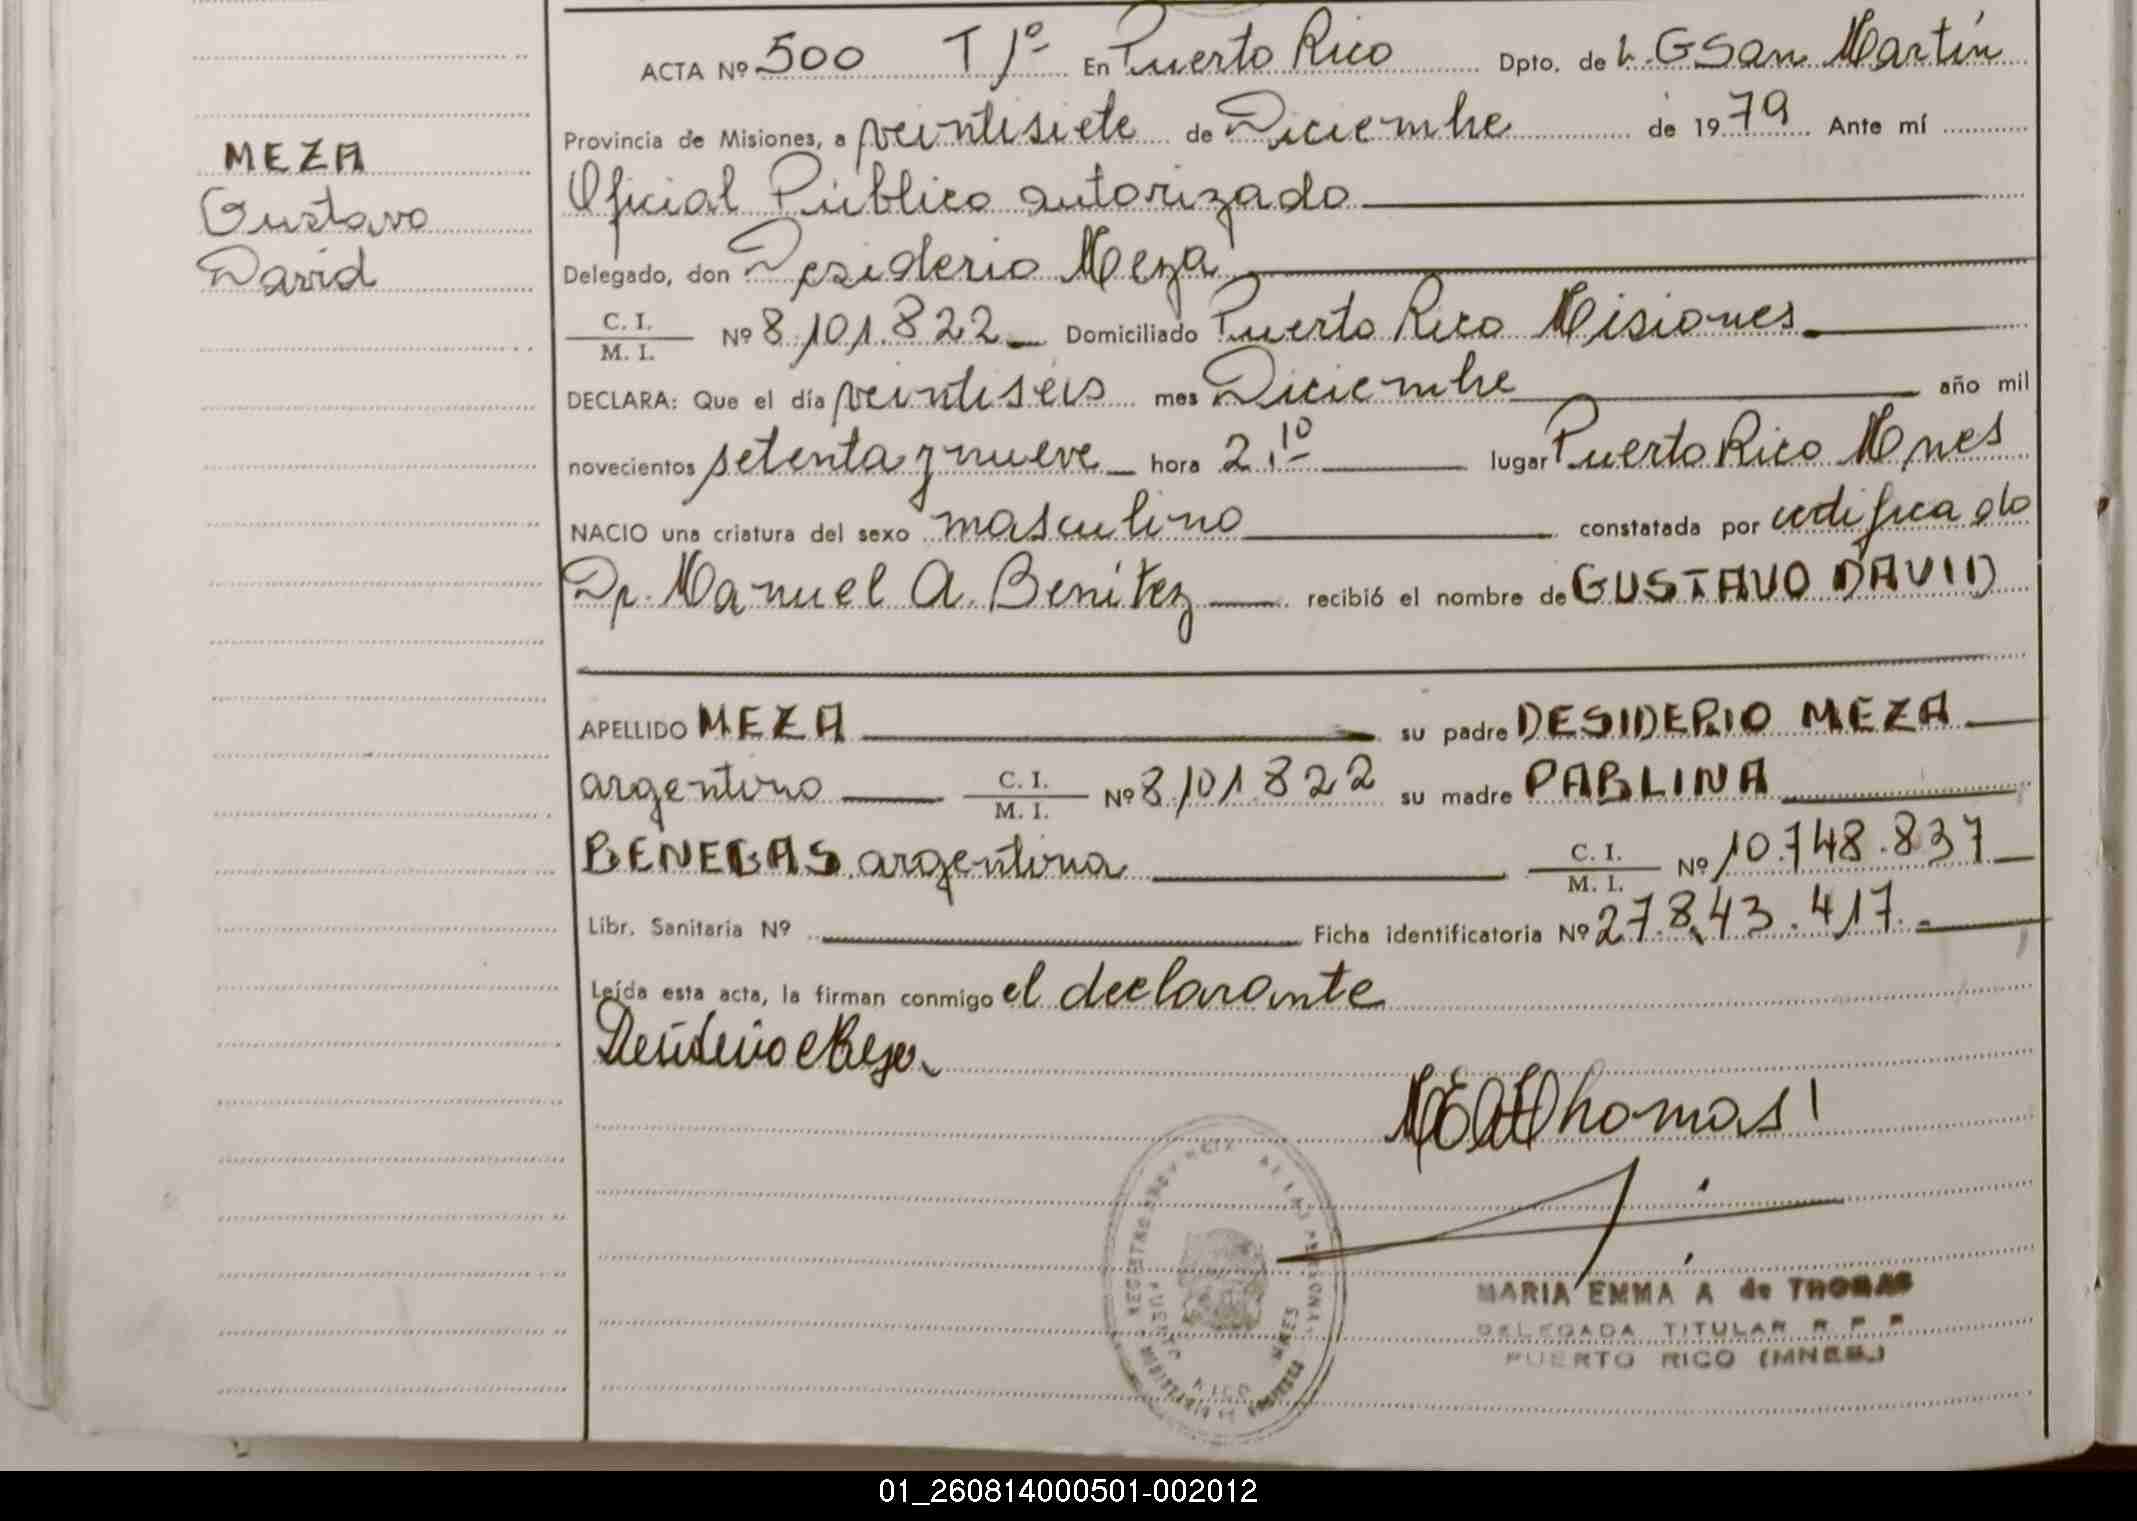 ACTA Nº 500 T 1º En Puerto Rico Dpto. de L. G San Martín
Provincia de Misiones, a veintisiete de Diciembre de 1979 Ante mí
MEZA
Oficial Público autorizado
Gustavo
Delegado, don Desiderio Meza
David
C. I.
M. I. Nº 8.101.822 Domiciliado Puerto Rico Misiones
DECLARA: Que el día veintiséis mes Diciembre año mil
novecientos setenta y nueve hora 2,10 lugar Puerto Rico Mnes
NACIO una criatura del sexo masculino constatada por certificado
Dr. Manuel A. Benítez recibió el nombre de GUSTAVO DAVID
APELLIDO MEZA su padre DESIDERIO MEZA
argentino C. I.
M. I. Nº 8.101.822 su madre PABLINA
BENEGAS argentina C. I.
M. I. Nº 10.748.837
Libr. Sanitaria Nº Ficha identificatoria Nº 27.843.417.
Leída esta acta, la firman conmigo el declarante
Desiderio Meza
Thomas
MARIA EMMA A de THOMAS
DELEGADA TITULAR R P P
PUERTO RICO (MNES.)
01_260814000501-002012